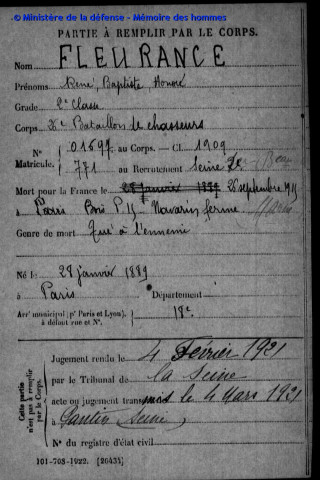 © Ministère de la défense - Mémoire des hommes
PARTIE À REMPLIR PAR LE CORPS.
Nom FLEURANCE
Prénoms René Baptiste, Honoré
Grade 2e Classe
Corps Bataillon de chasseurs
N° 01697 au Corps. — Cl. 1909
Matricule. 771 au Recrutement Seine
Mort pour la France le 28 janvier 1889 26 septembre 1915
à Navarin ferme Marne
Genre de mort Tué à l'ennemi
Né le 28 janvier 1889
à Paris Département
Arrt municipal (pr Paris et Lyon), à défaut rue et N°. 18e
Cette partie n'est pas à remplir par le Corps.
Jugement rendu le 4 Février 1921
par le Tribunal de la Seine
acte ou jugement transmis le 4 mars 1921
à Pantin Seine
N° du registre d'état civil
101-708-1922. [20434]